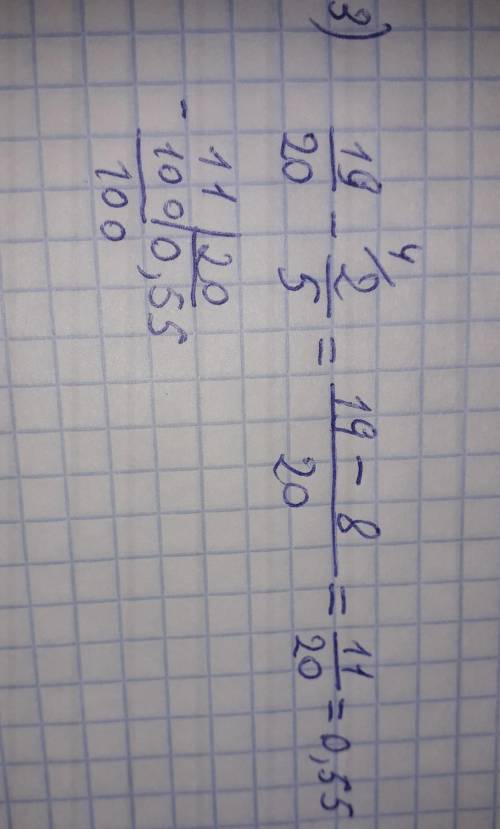 3)
19/20 - 2/5 ⁴⁄ = 19 - 8/20 = 11/20 = 0,55
- 11 | 20
100 | 0,55
100